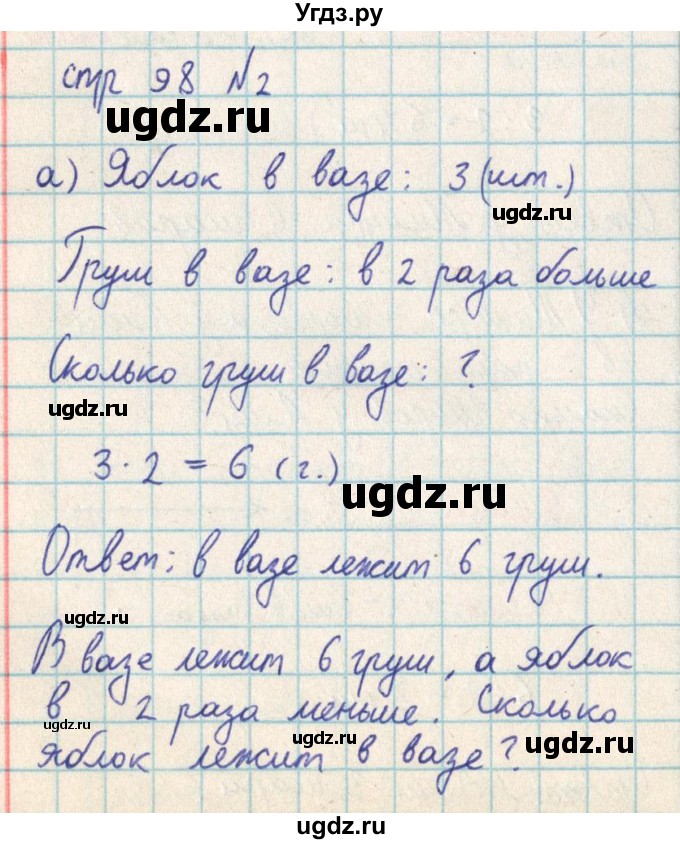 Угдз.ру
стр 98 №2
ugdz.ru
а) Яблок в вазе: 3 (шт.)
ugdz.ru
Груш в вазе: в 2 раза больше
Сколько груш в вазе: ?
ugdz.ru
3 · 2 = 6 (г.)
ugdz.ru
Ответ: в вазе лежит 6 груш.
ugdz.ru
В вазе лежит 6 груш, а яблок
в 2 раза меньше. Сколько
ugdz.ru
яблок лежит в вазе?
ugdz.ru
ugdz.ru